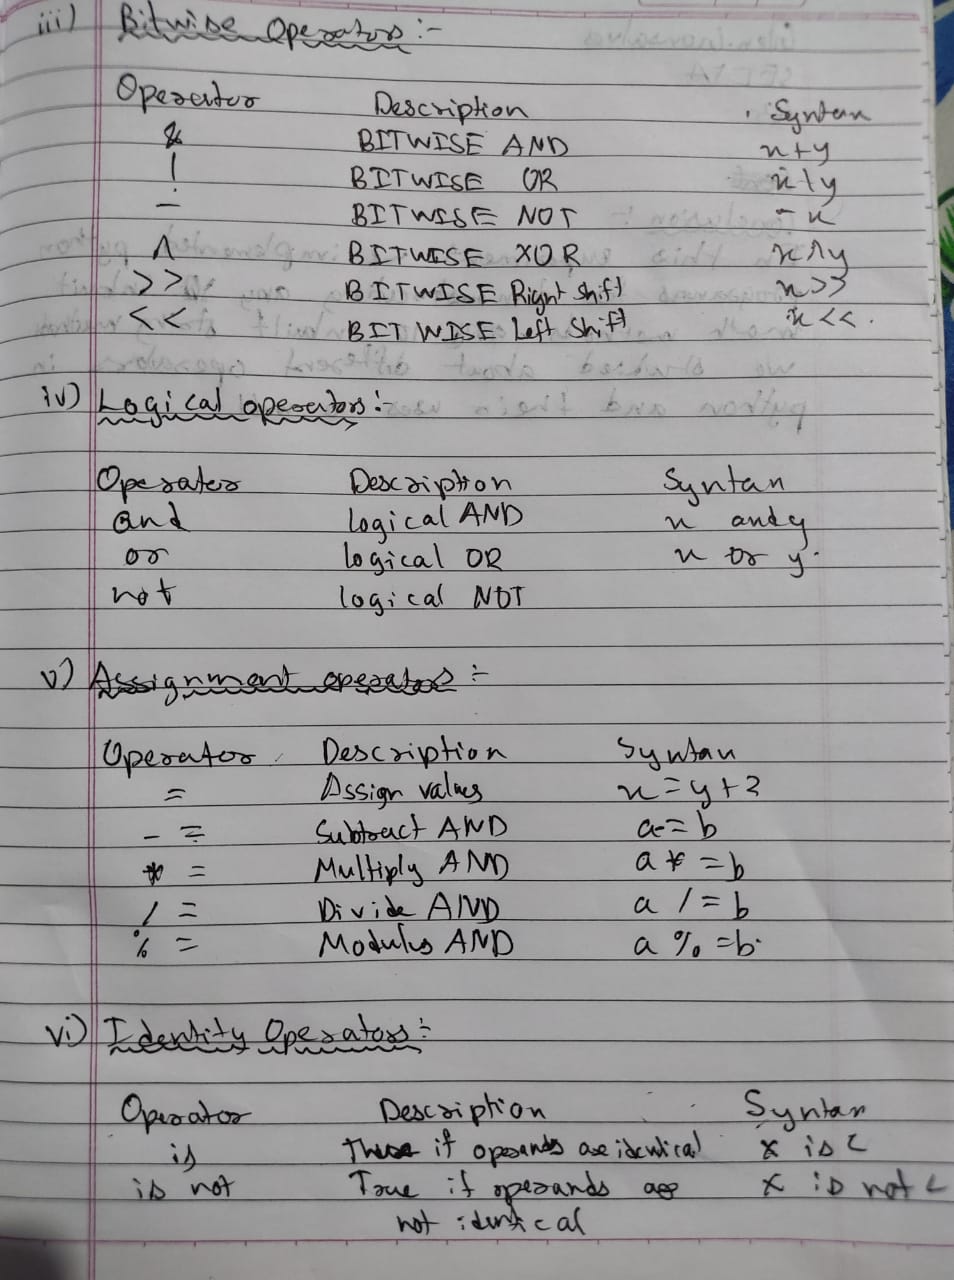 iii) Bitwise Operators :-
Operator Description Syntax
& BITWISE AND x+y
| BITWISE OR x|y
- BITWISE NOT - x
^ BITWISE XOR x^y
>> BITWISE Right Shift x>>
<< BITWISE Left Shift x<<.
iv) Logical operators :-
Operator Description Syntax
and logical AND x and y
or logical OR x or y.
not logical NOT
v) Assignment operators :-
Operator Description Syntax
= Assign values x=y+3
- = Subtract AND a-=b
* = Multiply AND a *=b
/ = Divide AND a /=b
% = Modulus AND a %=b.
vi) Identity Operators :-
Operator Description Syntax
is True if operands are identical x is
is not True if operands are x is not
not identical